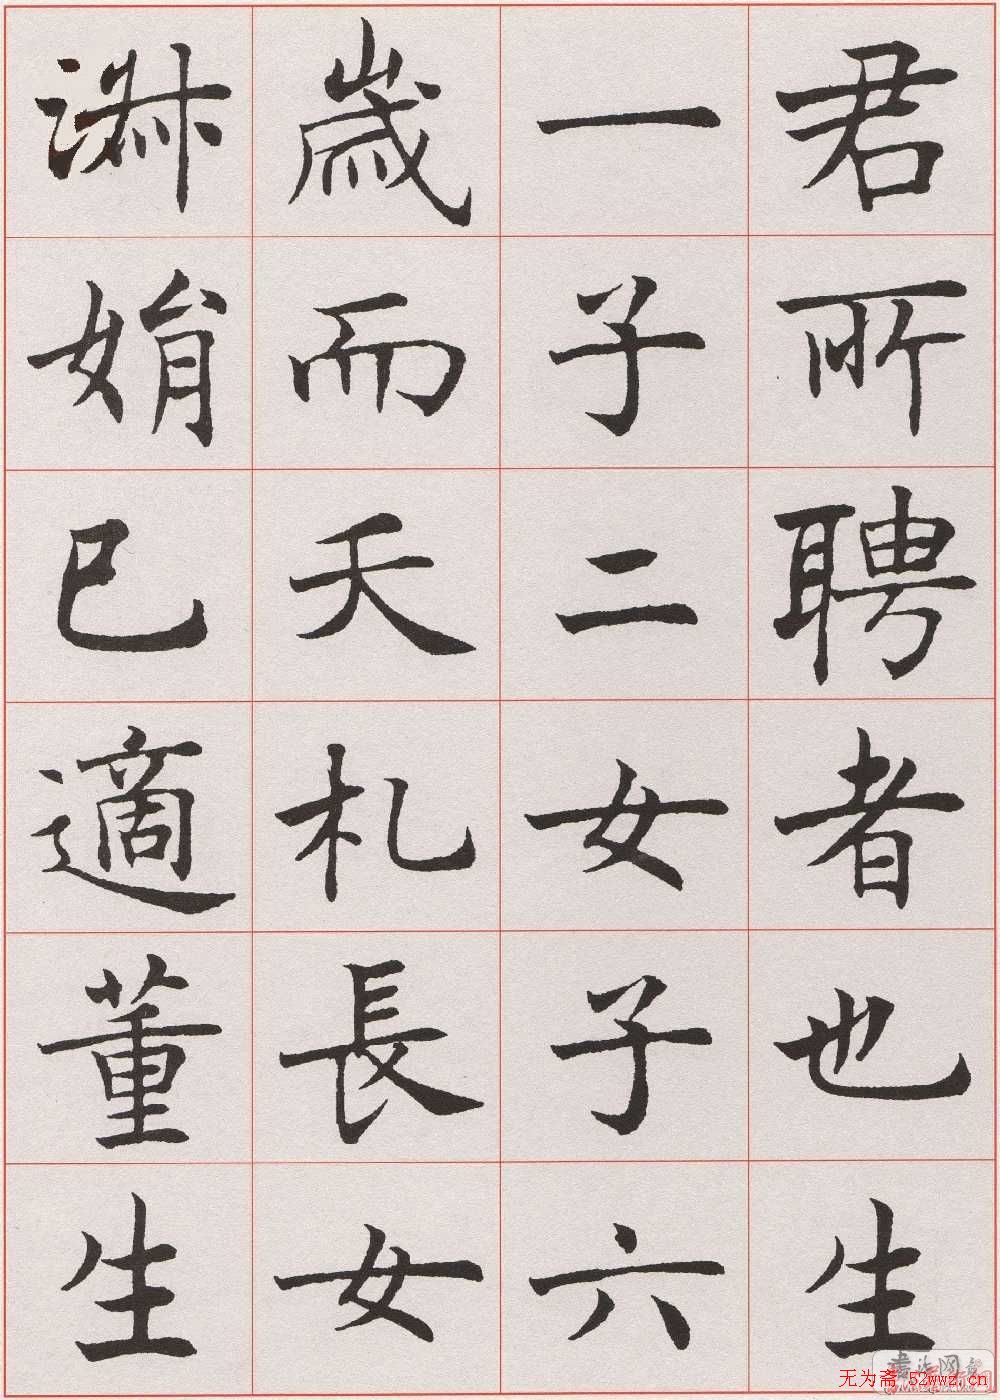 君所聘者也生
一子二女子六
歲而夭札長女
淑娟已適董生
无为斋 52wwz.cn